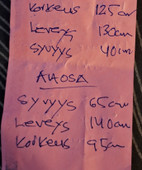 Korkeus 125cm
Leveys 130cm
Syvyys 40cm
ALAOSA
Syvyys 65cm
Leveys 140cm
Korkeus 95cm